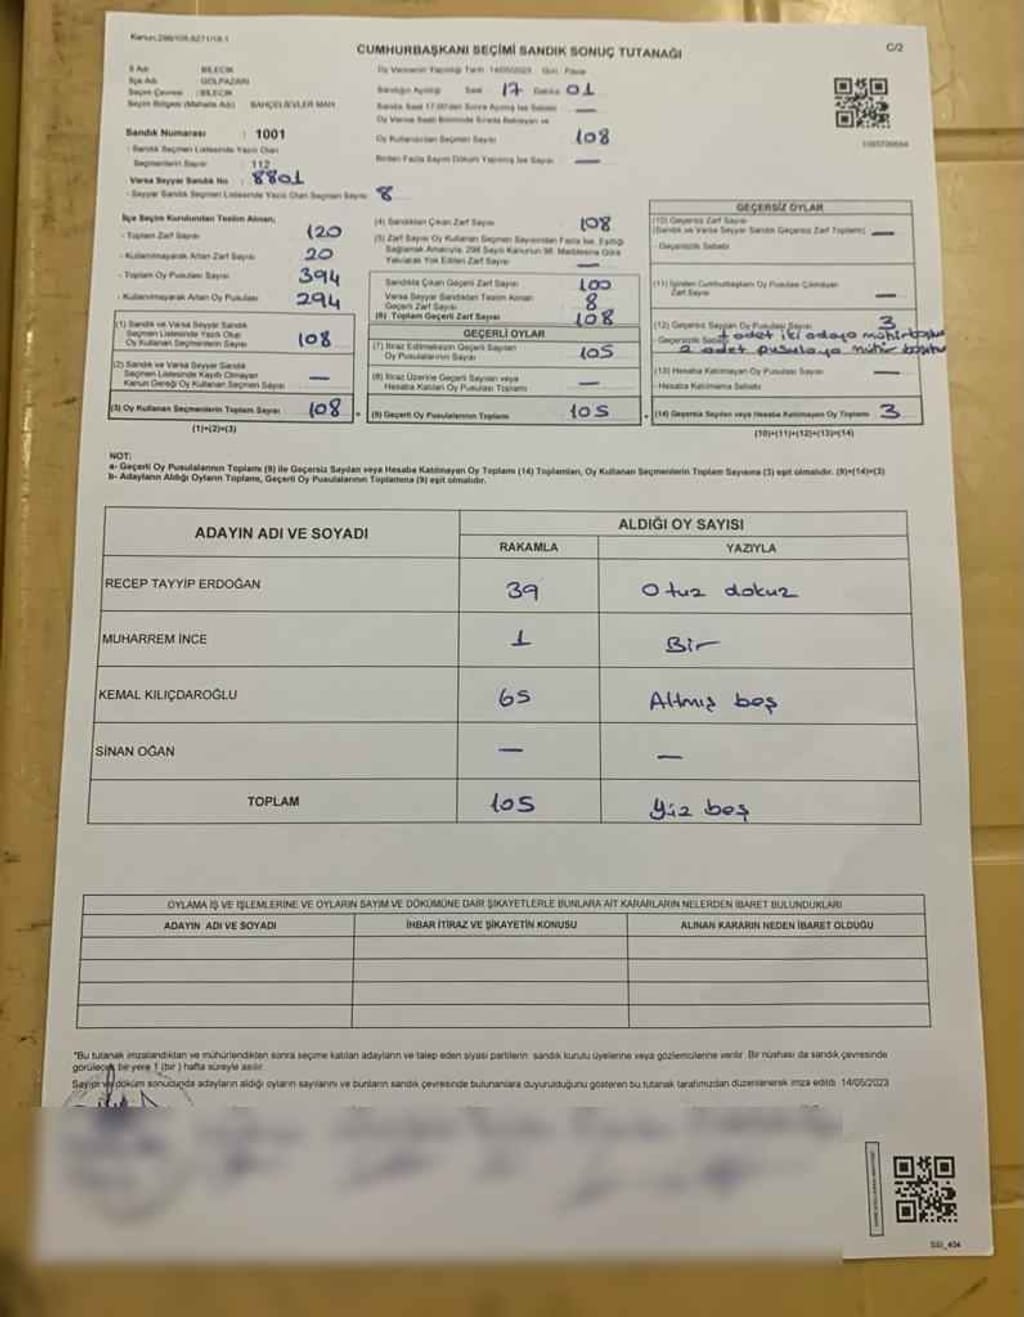 Kanun:298/105.6271/19.1
CUMHURBAŞKANI SEÇİMİ SANDIK SONUÇ TUTANAĞI
C/2
İl Adı : BİLECİK
İlçe Adı : GÖLPAZARI
Seçim Çevresi : BİLECİK
Seçim Bölgesi (Mahalle Adı) : BAHÇELİEVLER MAH.
Sandık Numarası : 1001
Sandık Seçmen Listesinde Yazılı Olan
Seçmenlerin Sayısı : 112
Varsa Seyyar Sandık No : 8801
Seyyar Sandık Seçmen Listesinde Yazılı Olan Seçmen Sayısı 8
Oy Vermenin Yapıldığı Tarih : 14/05/2023 Gün : Pazar
Sandığın Açıldığı Saat 17 Dakika 01
Sandık Saat 17.00'den Sonra Açılmış İse Sebebi —
Oy Verme Saati Bitiminde Sırada Bekleyen ve
Oy Kullandırılan Seçmen Sayısı 108
Birden Fazla Sayım Döküm Yapılmış İse Sayısı —
İlçe Seçim Kurulundan Teslim Alınan,
- Toplam Zarf Sayısı 120
- Kullanılmayarak Artan Zarf Sayısı 20
- Toplam Oy Pusulası Sayısı 394
- Kullanılmayarak Artan Oy Pusulası 294
(1) Sandık ve Varsa Seyyar Sandık
Seçmen Listesinde Yazılı Olup
Oy Kullanan Seçmenlerin Sayısı 108
(2) Sandık ve Varsa Seyyar Sandık
Seçmen Listesinde Kayıtlı Olmayan
Kanun Gereği Oy Kullanan Seçmen Sayısı —
(3) Oy Kullanan Seçmenlerin Toplam Sayısı 108
(1)+(2)=(3)
(4) Sandıktan Çıkan Zarf Sayısı 108
(5) Zarf Sayısı Oy Kullanan Seçmen Sayısından Fazla İse, Eşitliği
Sağlamak Amacıyla, 298 Sayılı Kanunun 98. Maddesine Göre
Yakılarak Yok Edilen Zarf Sayısı —
Sandıkta Çıkan Geçerli Zarf Sayısı 100
Varsa Seyyar Sandıktan Teslim Alınan
Geçerli Zarf Sayısı 8
(6) Toplam Geçerli Zarf Sayısı 108
GEÇERLİ OYLAR
(7) İtiraz Edilmeksizin Geçerli Sayılan
Oy Pusulalarının Sayısı 105
(8) İtiraz Üzerine Geçerli Sayılan veya
Hesaba Katılan Oy Pusulası Toplamı —
(9) Geçerli Oy Pusulalarının Toplamı 105
GEÇERSİZ OYLAR
(10) Geçersiz Zarf Sayısı
(Sandık ve Varsa Seyyar Sandık Geçersiz Zarf Toplamı) —
Geçersizlik Sebebi
(11) İçinden Cumhurbaşkanı Oy Pusulası Çıkmayan
Zarf Sayısı —
(12) Geçersiz Sayılan Oy Pusulası Sayısı 3
Geçersizlik Sebebi 1 adet iki adaya mühür
2 adet pusulaya mühür
(13) Hesaba Katılmayan Oy Pusulası Sayısı —
Hesaba Katılmama Sebebi
(14) Geçersiz Sayılan veya Hesaba Katılmayan Oy Toplamı 3
(10)+(11)+(12)+(13)=(14)
NOT:
a- Geçerli Oy Pusulalarının Toplamı (9) ile Geçersiz Sayılan veya Hesaba Katılmayan Oy Toplamı (14) Toplamları, Oy Kullanan Seçmenlerin Toplam Sayısına (3) eşit olmalıdır. (9)+(14)=(3)
b- Adayların Aldığı Oyların Toplamı, Geçerli Oy Pusulalarının Toplamına (9) eşit olmalıdır.
ADAYIN ADI VE SOYADI ALDIĞI OY SAYISI
RAKAMLA YAZIYLA
RECEP TAYYİP ERDOĞAN 39 Otuz dokuz
MUHARREM İNCE 1 Bir
KEMAL KILIÇDAROĞLU 65 Altmış beş
SİNAN OĞAN — —
TOPLAM 105 Yüz beş
OYLAMA İŞ VE İŞLEMLERİNE VE OYLARIN SAYIM VE DÖKÜMÜNE DAİR ŞİKAYETLERLE BUNLARA AİT KARARLARIN NELERDEN İBARET BULUNDUKLARI
ADAYIN ADI VE SOYADI İHBAR İTİRAZ VE ŞİKAYETİN KONUSU ALINAN KARARIN NEDEN İBARET OLDUĞU
*Bu tutanak imzalandıktan ve mühürlendikten sonra seçime katılan adayların ve talep eden siyasi partilerin sandık kurulu üyelerine veya gözlemcilerine verilir. Bir nüshası da sandık çevresinde
görülecek bir yere 1 (bir) hafta süreyle asılır.
Sayım ve döküm sonucunda adayların aldığı oyların sayılarını ve bunların sandık çevresinde bulunanlara duyurulduğunu gösteren bu tutanak tarafımızdan düzenlenerek imza edildi. 14/05/2023